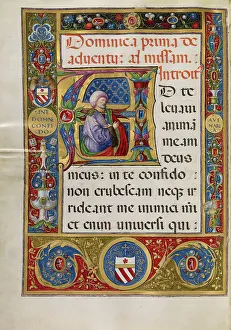 Dominica prima de
adventu: ad missam.
Introit
D te
levavi
animã
meam
deus
meus: in te confido
non erubescam neq; ir
rideant me inimici mi
et enim universi qui:
IN TE
DOMN
CONFI
DO
AVE
MARI